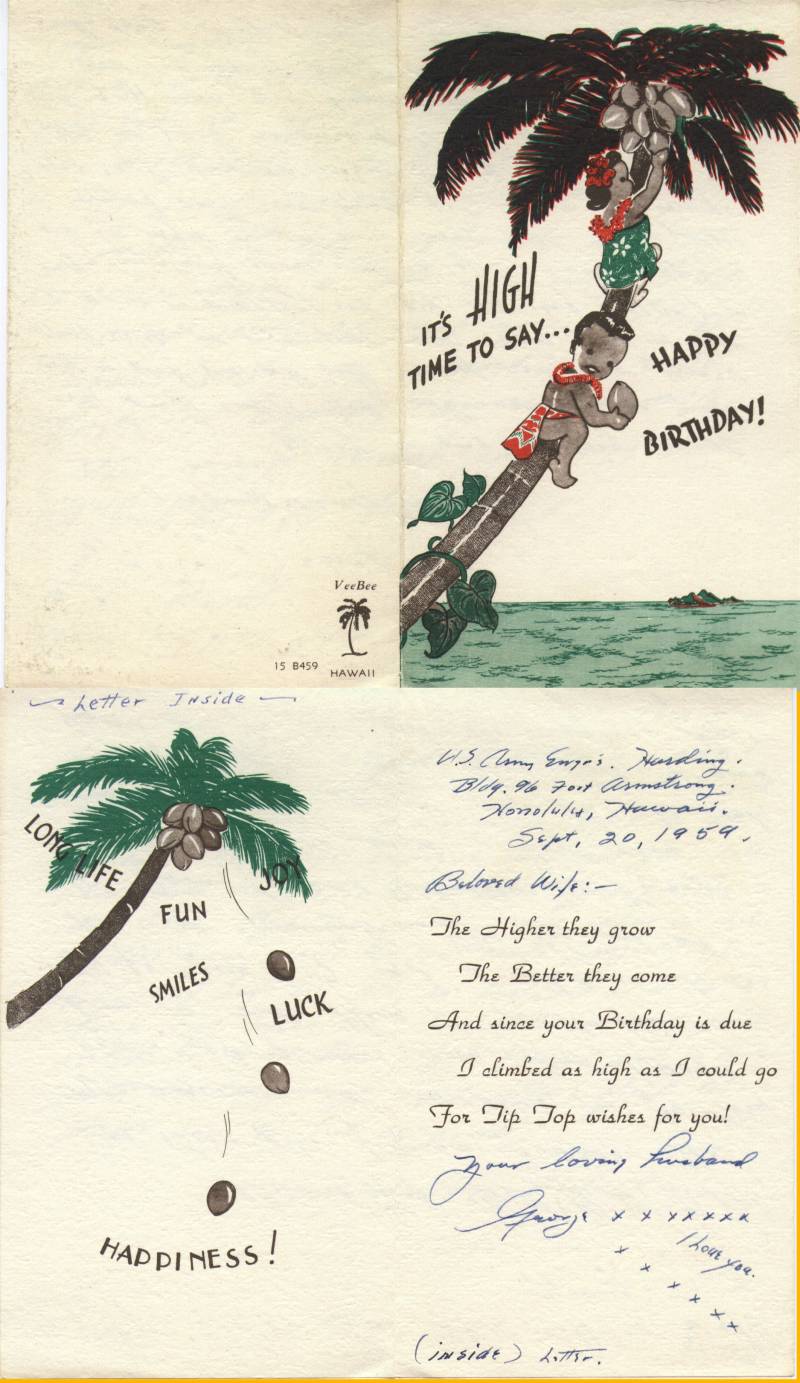 IT'S HIGH
TIME TO SAY...
HAPPY
BIRTHDAY!
VeeBee
15 B459
HAWAII
Letter Inside
LONG LIFE
JOY
FUN
SMILES
LUCK
HAPPINESS!
U.S. Army Engrs. Harding.
Bldg. 96 Fort Armstrong.
Honolulu, Hawaii.
Sept, 20, 1959.
Beloved Wife:—
The Higher they grow
The Better they come
And since your Birthday is due
I climbed as high as I could go
For Tip Top wishes for you!
Your loving husband
George x x x x x x x x
I Love you.
x x x x x x
(inside) Letter.